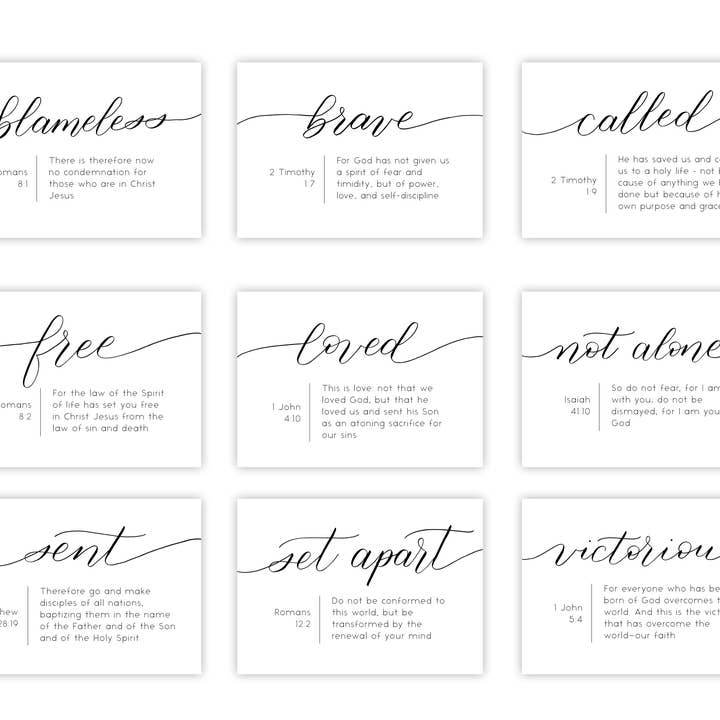 blameless
8:1
There is therefore now
no condemnation for
those who are in Christ
Jesus
brave
2 Timothy
1:7
For God has not given us
a spirit of fear and
timidity, but of power,
love, and self-discipline
called
2 Timothy
1:9
He has saved us and
us to a holy life - not
cause of anything we
done but because of
own purpose and grace
free
8:2
For the law of the Spirit
of life has set you free
in Christ Jesus from the
law of sin and death
loved
1 John
4:10
This is love: not that we
loved God, but that he
loved us and sent his Son
as an atoning sacrifice for
our sins
not alone
Isaiah
41:10
So do not fear, for I am
with you, do not be
dismayed, for I am you
God
sent
28:19
Therefore go and make
disciples of all nations,
baptizing them in the name
of the Father and of the Son
and of the Holy Spirit
set apart
Romans
12:2
Do not be conformed to
this world, but be
transformed by the
renewal of your mind
victoriou
1 John
5:4
For everyone who has be
born of God overcomes
world. And this is the vict
that has overcome the
world-our faith